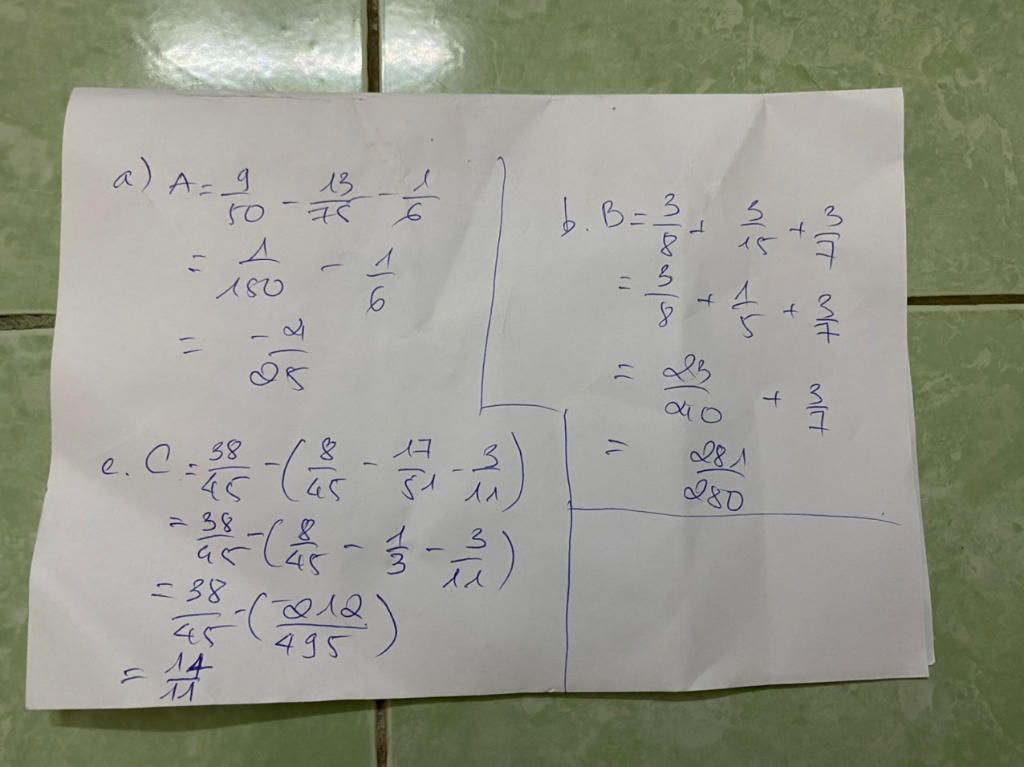 a) A = 9/50 - 13/75 - 1/6
= 1/150 - 1/6
= -4/25
b. B = 3/8 + 3/15 + 3/7
= 3/8 + 1/5 + 3/7
= 23/40 + 3/7
= 281/280
c. C = 38/45 - (8/45 - 17/51 - 3/11)
= 38/45 - (8/45 - 1/3 - 3/11)
= 38/45 - (-212/495)
= 14/11